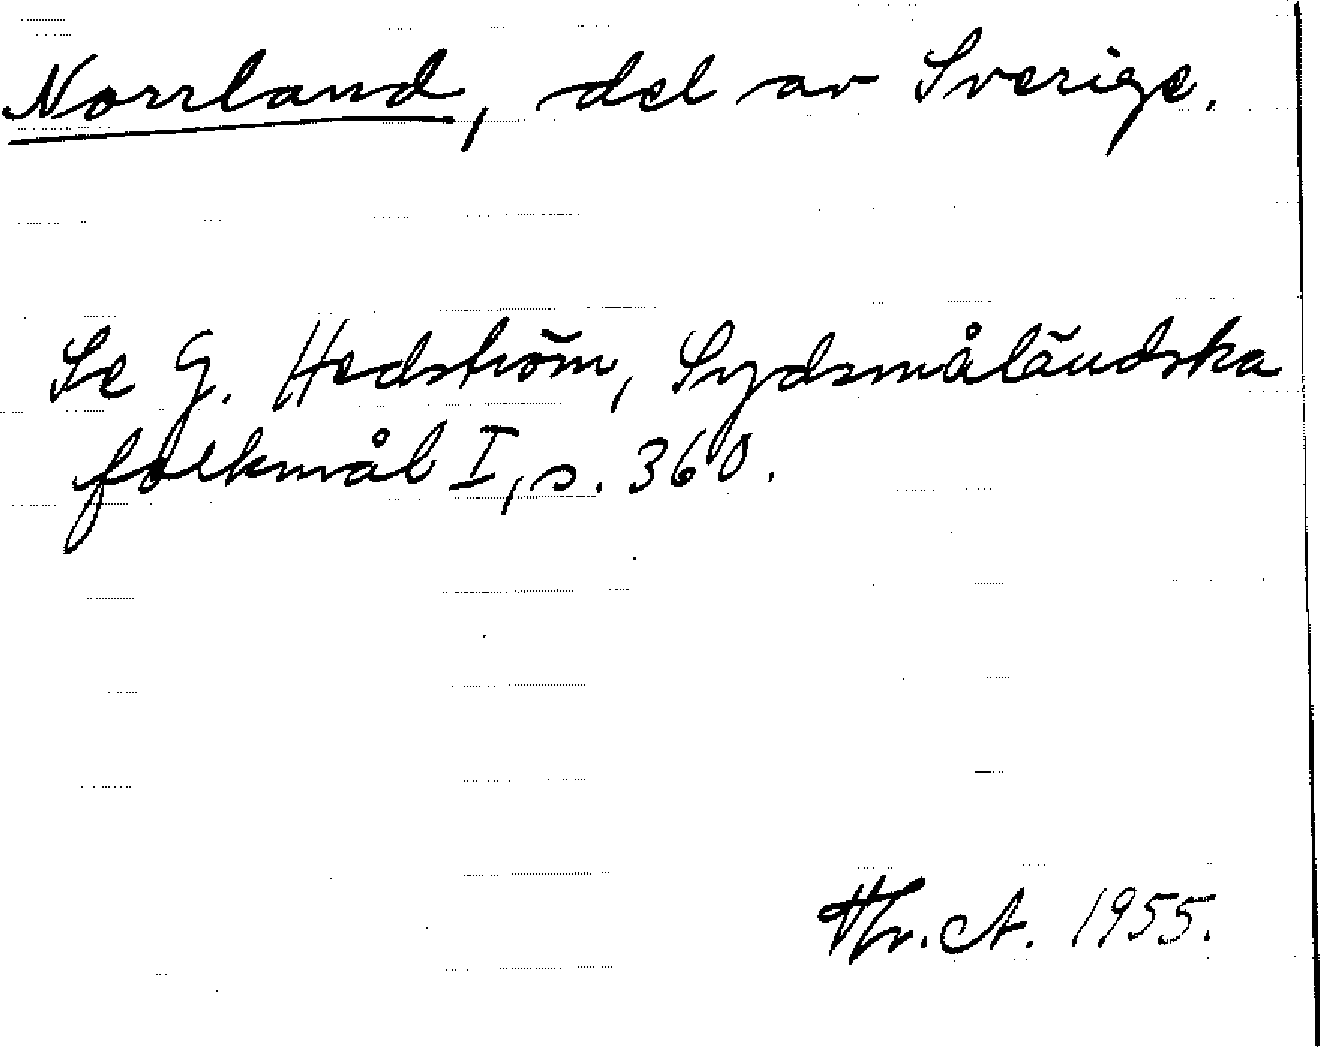 Norrland, del av Sverige.
Se G. Hedström, Sydsmåländska
folkmål I, s. 360.
A. 1955.